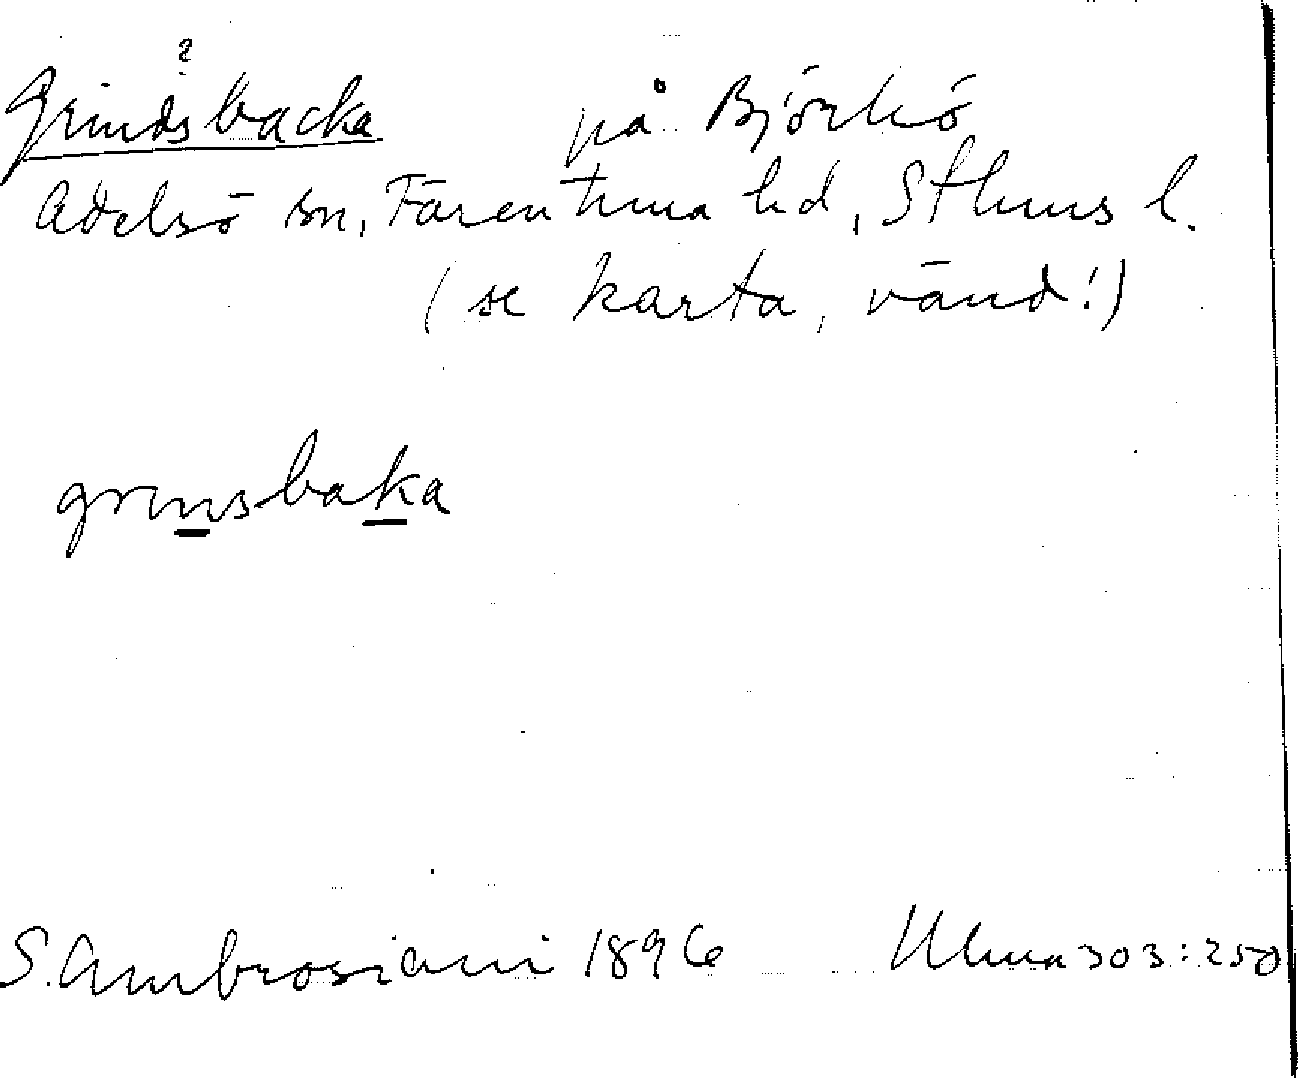 ?
Grindsbacka på Björkö
Adelsö sn, Färentuna hd, Sthms l.
(se karta, vänd!)
grinsbaka
S. Ambrosiani 1896 Ulma 303:250